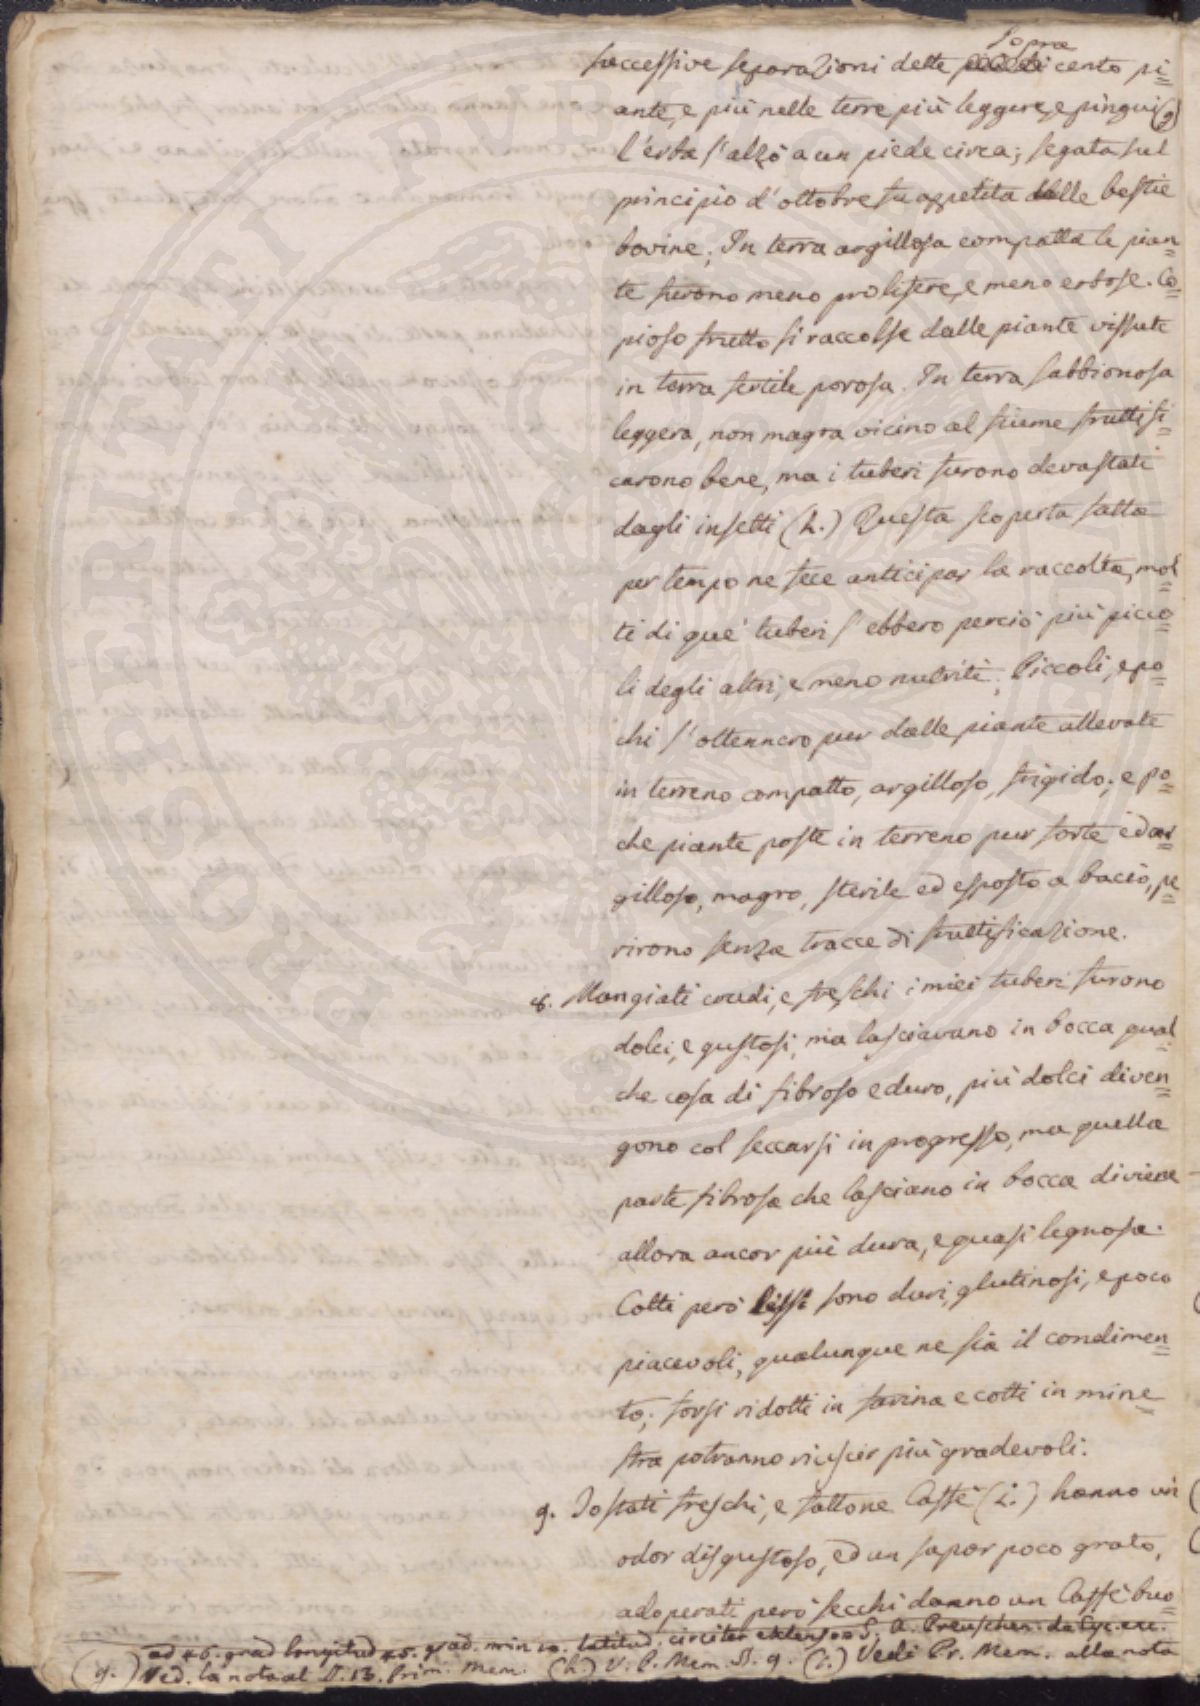 sopra
successive separazioni delle cento pi=
ante, e più nelle terre più leggere, e pingui (g)
l'erba s'alzò a un piede circa; segata sul
principio d'ottobre fu appetita dalle bestie
bovine; In terra argillosa compatta le pian=
te furono meno prolifere, e meno erbose. Co=
pioso frutto si raccolse dalle piante vissute
in terra fertile porosa. In terra sabbionosa
leggera, non magra vicino al fiume fruttifi=
carono bene, ma i tuberi furono devastati
dagli insetti (h.) Questa scoperta fatta
per tempo ne fece anticipar la raccolta, mol=
ti di que' tuberi s'ebbero perciò più picco=
li degli altri, e meno nutriti; Piccoli, e po=
chi s'ottennero pur dalle piante allevate
in terreno compatto, argilloso, frigido; e po=
che piante poste in terreno pur forte ed ar=
gilloso, magro, sterile ed esposto a bacìo, pe=
rirono senza tracce di fruttificazione.
8. Mangiati crudi, e freschi i miei tuberi furono
dolci, e gustosi, ma lasciavano in bocca qual=
che cosa di fibroso e duro, più dolci diven=
gono col seccarsi in progresso, ma quella
parte fibrosa che lasciano in bocca diviene
allora ancor più dura, e quasi legnosa.
Cotti però lissi sono duri, glutinosi, e poco
piacevoli, qualunque ne sia il condimen=
to; forsi ridotti in farina e cotti in mine=
stra potranno riuscir più gradevoli.
9. Tostati freschi, e fattone Caffè (i.) hanno un
odor disgustoso, ed un sapor poco grato,
adoperati però secchi danno un Caffè buo=
ad 46. grad longitud 45. grad. min 10. latitud. circiter extenso S. A. Preuschen. da
(g.) Ved. la nota al §. 13. Prim. Mem. (h.) V. P. Mem. §. 9. (i.) Vedi Pr. Mem. alla nota
PROSPERITATI PVBLICAE